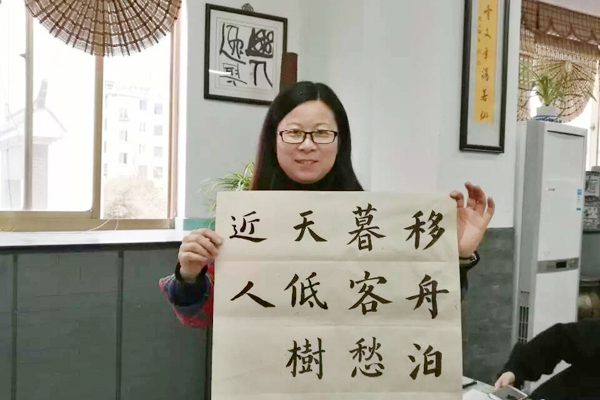 移舟泊
暮客愁
天低樹
近人